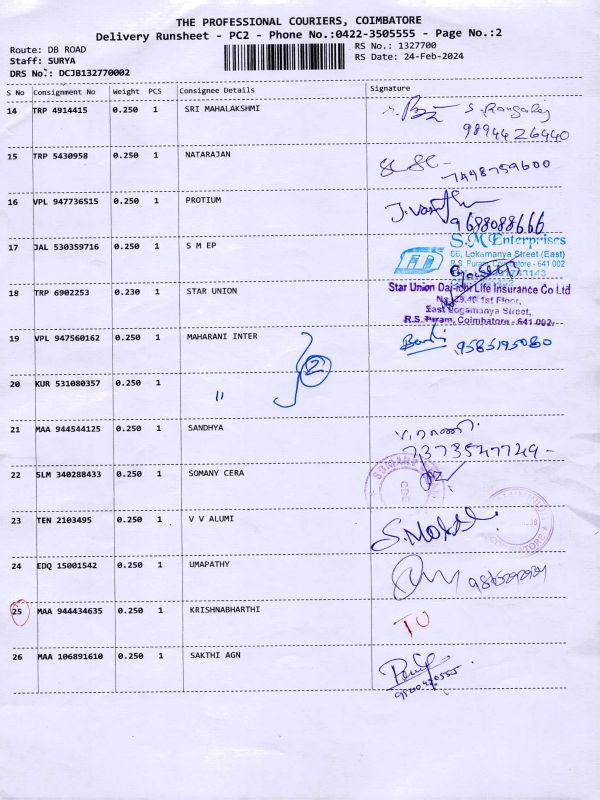 THE PROFESSIONAL COURIERS, COIMBATORE
Delivery Runsheet - PC2 - Phone No.:0422-3505555 - Page No.:2
Route: DB ROAD
RS No.: 1327700
Staff: SURYA
RS Date: 24-Feb-2024
DRS No.: DCJB132770002
S No Consignment No Weight PCS Consignee Details Signature
14 TRP 4914415 0.250 1 SRI MAHALAKSHMI
9894426440
15 TRP 5430958 0.250 1 NATARAJAN
7448759600
16 VPL 947736515 0.250 1 PROTIUM
9688088666
17 JAL 530359716 0.250 1 S M EP
S.M Enterprises
66, Lokamanya Street (East)
R.S. Puram, Coimbatore - 641 002
18 TRP 6902253 0.230 1 STAR UNION
Star Union Dai-ichi Life Insurance Co Ltd
No. 29,40 1st Floor,
East Logamanya Street,
R.S. Puram, Coimbatore - 641 002.
19 VPL 947560162 0.250 1 MAHARANI INTER
2
20 KUR 531080357 0.250 1 "
21 MAA 944544125 0.250 1 SANDHYA
7373547749-
22 SLM 340288433 0.250 1 SOMANY CERA
SOMANY
23 TEN 2103495 0.250 1 V V ALUMI
24 EDQ 15001542 0.250 1 UMAPATHY
25 MAA 944434635 0.250 1 KRISHNABHARTHI
26 MAA 106891610 0.250 1 SAKTHI AGN